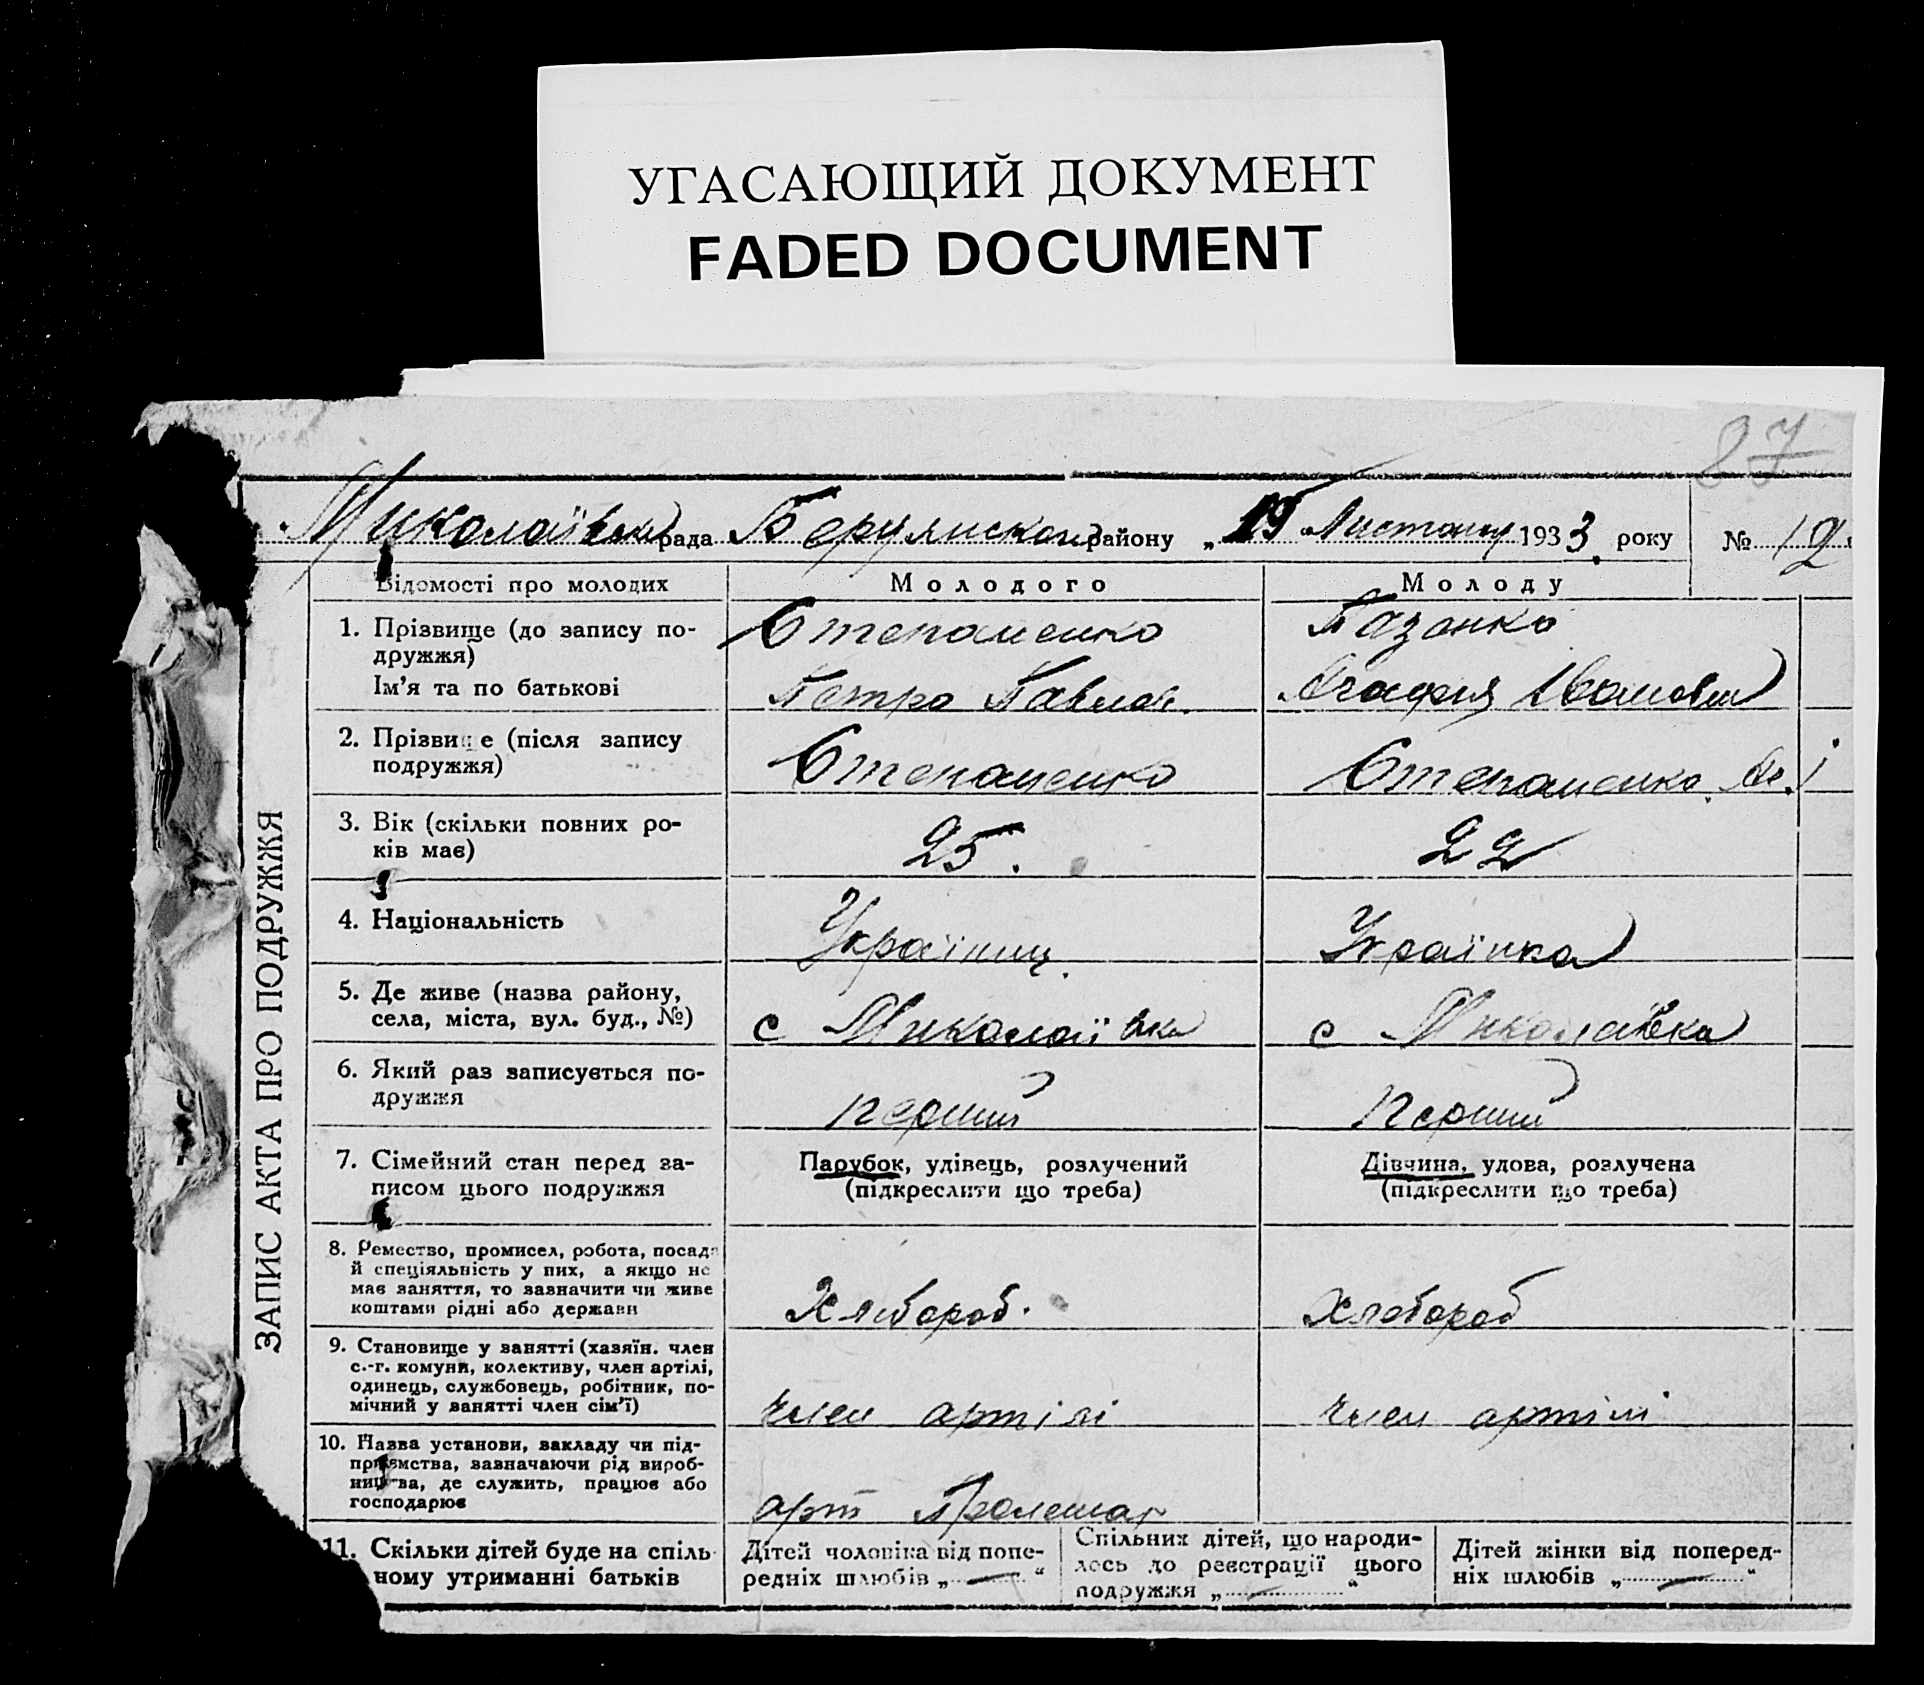 УГАСАЮЩИЙ ДОКУМЕНТ
FADED DOCUMENT
87
Миколаївська рада Берулиского району „19“ Листопаду 1933 року № 12
ЗАПИС АКТА ПРО ПОДРУЖЖЯ
Відомості про молодих Молодого Молоду
1. Прізвище (до запису по- Степаненко Пазенко
дружжя)
Ім'я та по батькові Петро Павлов. Агафія Іванівна
2. Прізвище (після запису
подружжя) Степаненко Степаненко
3. Вік (скільки повних ро-
ків має) 25. 22
4. Національність Українец. Українка
5. Де живе (назва району,
села, міста, вул. буд., №) с Миколаївка с Миколаївка
6. Який раз записується по-
дружжя перший перший
7. Сімейний стан перед за- Парубок, удівець, розлучений Дівчина, удова, розлучена
писом цього подружжя (підкреслити що треба) (підкреслити що треба)
8. Ремество, промисел, робота, посада
й спеціяльність у них, а якщо не
має заняття, то зазначити чи живе
коштами рідні або держави Хлебороб. Хлебороб
9. Становище у занятті (хазяїн. член
с.-г. комуни, колективу, член артілі,
одинець, службовець, робітник, по-
мічний у занятті член сім'ї) член артілі член артілі
10. Назва установи, закладу чи під-
приємства, зазначаючи рід вироб-
ництва, де служить, працює або
господарює арт Пролетар
11. Скільки дітей буде на спіль-
ному утриманні батьків
Дітей чоловіка від попе-
редніх шлюбів „ — “
Спільних дітей, що народи-
лось до реєстрації цього
подружжя „ — “
Дітей жінки від поперед-
ніх шлюбів „ — “